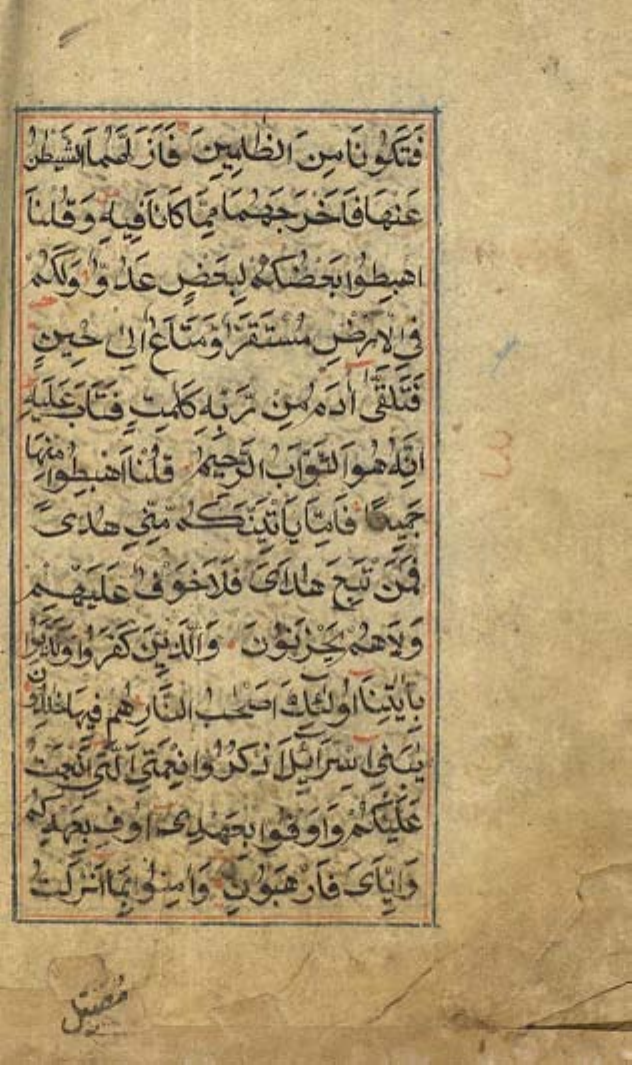 فَتَكُونَا مِنَ الظّٰلِمِينَ فَاَزَلَّهُمَا الشَّيْطٰنُ
عَنْهَا فَاَخْرَجَهُمَا مِمَّا كَانَا فِيهِ وَقُلْنَا
اهْبِطُوا بَعْضُكُمْ لِبَعْضٍ عَدُوٌّ وَلَكُمْ
فِي الْاَرْضِ مُسْتَقَرٌّ وَمَتَاعٌ اِلىٰ حِينٍ
فَتَلَقّٰى اٰدَمُ مِنْ رَبِّهِ كَلِمٰتٍ فَتَابَ عَلَيْهِ
اِنَّهُ هُوَ التَّوَّابُ الرَّحِيمُ قُلْنَا اهْبِطُوا مِنْهَا
جَمِيعًا فَاِمَّا يَاْتِيَنَّكُمْ مِنِّي هُدىً
فَمَنْ تَبِعَ هُدَايَ فَلَا خَوْفٌ عَلَيْهِمْ
وَلَا هُمْ يَحْزَنُونَ وَالَّذِينَ كَفَرُوا وَكَذَّبُوا
بِاٰيٰتِنَا اُولٰئِكَ اَصْحٰبُ النَّارِ هُمْ فِيهَا خٰلِدُونَ
يٰبَنِي اِسْرَائِيلَ اذْكُرُوا نِعْمَتِيَ الَّتِي اَنْعَمْتُ
عَلَيْكُمْ وَاَوْفُوا بِعَهْدِي اُوفِ بِعَهْدِكُمْ
وَاِيَّايَ فَارْهَبُونِ وَاٰمِنُوا بِمَا اَنْزَلْتُ